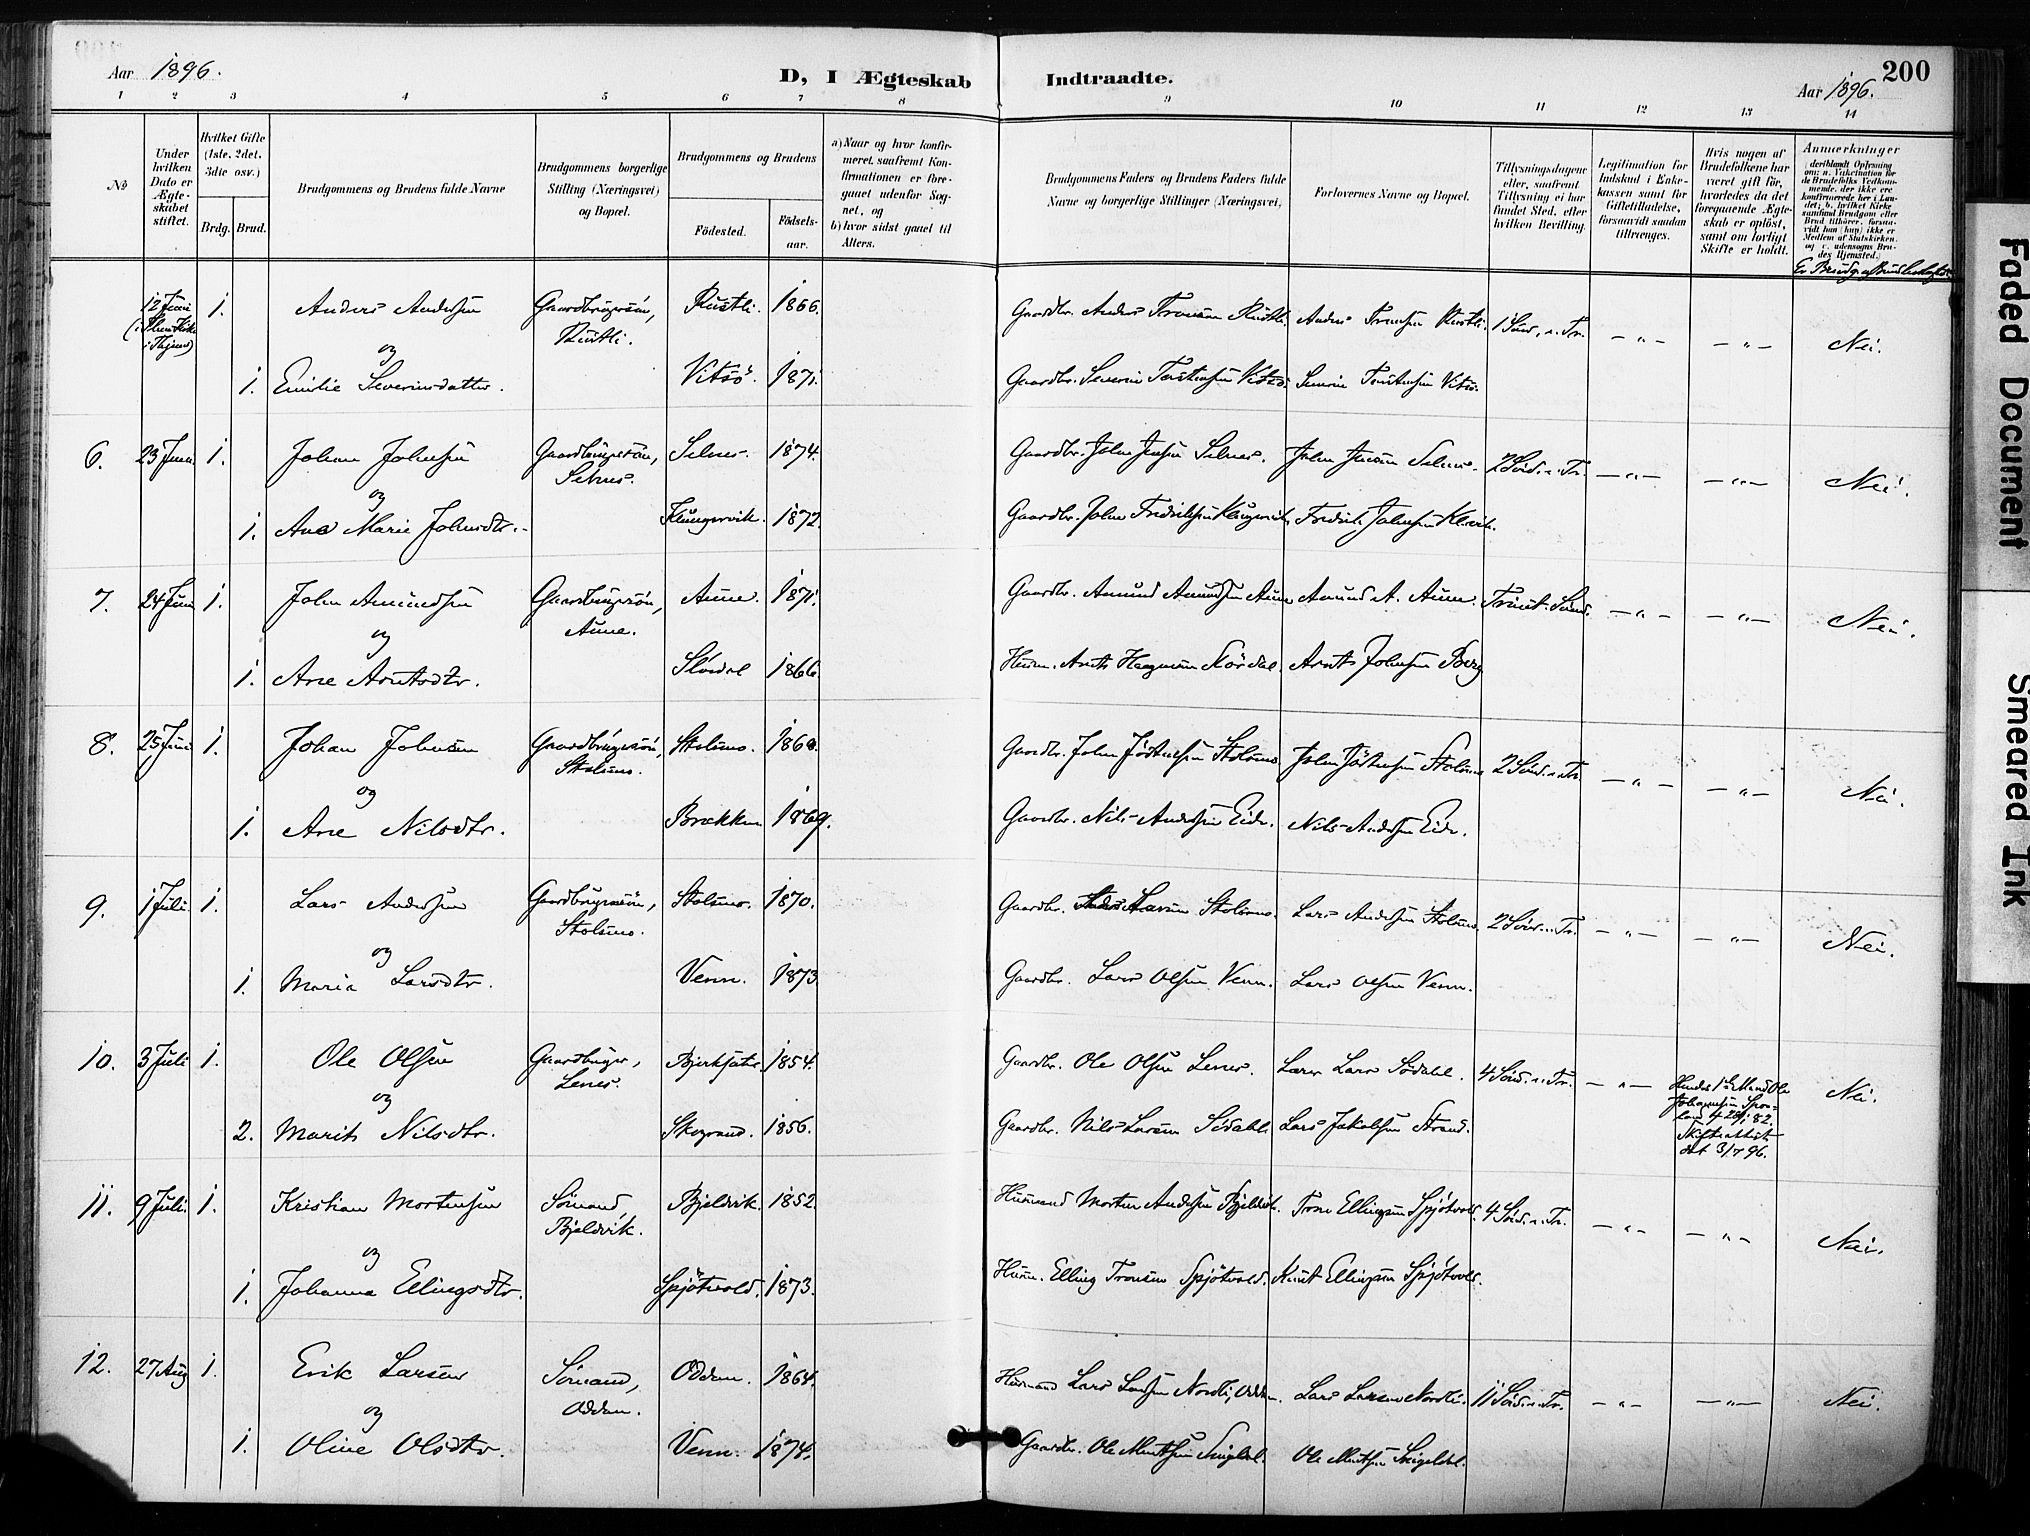 Aar 1896.
D, I Ægteskab Indtraadte.
200
Aar 1896.
1 2 3 4 5 6 7 8 9 10 11 12 13 14
No
Under hvilken Dato er Ægteskabet stiftet.
Hvilket Gifte (1ste, 2det, 3die osv.)
Brdg. Brud.
Brudgommens og Brudens fulde Navne
Brudgommens borgerlige Stilling (Næringsvei) og Bopæl.
Brudgommens og Brudens
Födested.
Födsels-aar.
a) Naar og hvor konfirmeret, saafremt Konfirmationen er foregaaet udenfor Sognet, og
b) hvor sidst gaaet til Alters.
Brudgommens Faders og Brudens Faders fulde Navne og borgerlige Stillinger (Næringsvei)
Forlovernes Navne og Bopæl.
Tillysningsdagene eller, saafremt Tillysning ei har fundet Sted, efter hvilken Bevilling.
Legitimation for Indskud i Enkekassen samt for Giftetilladelse, forsaavidt saadan tiltrænges.
Hvis nogen af Brudefolkene har været gift för, hvorledes da det foregaaende Ægteskab er oplöst, samt om lovligt Skifte er holdt.
Anmærkninger
12 Juni 1. Anders Andersen Gaardbrugersön, Rustli. Rustli. 1866. Gaardbr. Anders Tronsen Rustli. Anders Tronsen Rustli. 1 Sönd. e. Tr. — " — — " — Nei.
og
1. Emilie Severinsdatter. Vitsö. 1871. Gaardbr. Severin Torstensen Vitsö. Severin Torstensen Vitsö.
6. 23 Juni. 1. Johan Johnsen Gaardbrugersön, Selnes. Selnes. 1874. Gaardbr. John Jensen Selnes. John Jensen Selnes. 2 Sönd. e. Tr. — " — — " — Nei.
og
1. Ane Marie Johnsdtr. Klungervik. 1872. Gaardbr. John Fredriksen Klungervik. Fredrik Johnsen Kl.vik.
7. 24 Juni 1. John Amundsen Gaardbrugersön, Aune. Aune. 1871. Gaardbr. Amund Amundsen Aune Amund A. Aune. Trinit. Sönd. — " — — " — Nei.
og
1. Ane Arntsdtr. Slördal 1866. Husm. Arnt Slördal. Arnt Johnsen Berg
8. 25 Juni 1. Johan Johnsen Gaardbrugersön, Stolsmo. Stolsmo. 1869. Gaardbr. John Jöstensen Stolsmo. John Jöstensen Stolsmo 2 Sönd. e. Tr. — " — — " — Nei.
og
1. Ane Nilsdtr. Brækken 1869. Gaardbr. Nils Andersen Eide. Nils Andersen Eide.
9. 1 Juli. 1. Lars Andersen Gaardbrugersön, Stolsmo. Stolsmo. 1870. Gaardbr. Anders Larsen Stolsmo. Lars Andersen Stolsmo. 2 Sönd. e. Tr. — " — — " — Nei.
og
1. Maria Larsdtr. Venn. 1873. Gaardbr. Lars Olsen Venn. Lars Olsen Venn.
10. 3 Juli 1. Ole Olsen Gaardbruger, Lenes. 1854. Gaardbr. Ole Olsen Lenes. Lærer Lars Södahl. 4 Sönd. e. Tr. — " — Hendes 1ste Mand Ole Johannesen 82. Skifteattest dat 3/7 96. Nei.
og
2. Marit Nilsdtr. Skogrand. 1856. Gaardbr. Nils Larsen Södahl. Lars Jakobsen Strand.
11. 9 Juli. 1. Kristian Mortensen Sömand, Bjeldvik. Bjeldvik. 1852. Husmand Morten Andersen Bjeldvik. Trone Ellingsen Spjötvold. 4 Sönd. e. Tr. — " — — " — Nei.
og
1. Johanna Ellingsdtr. Spjötvold. 1873. Husm. Elling Tronsen Spjötvold. Knut Ellingsen Spjötvold.
12. 27 Aug 1. Erik Larsen Sömand, Odden. Odden. 1864. Husmand Lars Larsen Nordli, Odden. Lars Larsen Nordli. 11 Sönd. e. Tr. — " — — " — Nei.
og
1. Oline Olsdtr. Venn. 1874. Gaardbr. Ole Ole
Faded Document
Smeared Ink